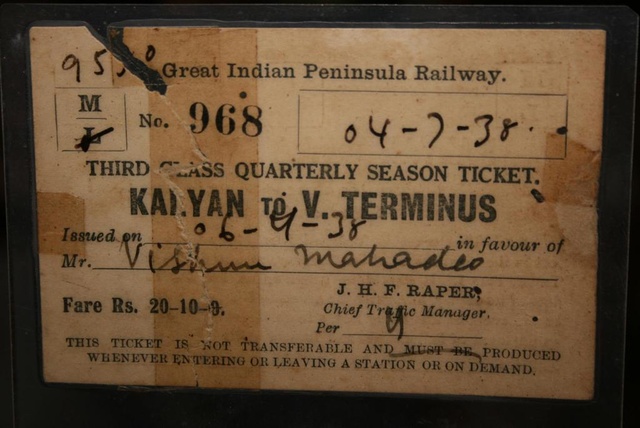 9530
Great Indian Peninsula Railway.
M
L
No. 968
04-7-38.
THIRD CLASS QUARTERLY SEASON TICKET.
KALYAN TO V. TERMINUS
Issued on 06-4-38 in favour of
Mr. Vishnu Mahadeo
Fare Rs. 20-10-0.
J. H. F. RAPER,
Chief Traffic Manager.
Per
THIS TICKET IS NOT TRANSFERABLE AND MUST BE PRODUCED
WHENEVER ENTERING OR LEAVING A STATION OR ON DEMAND.